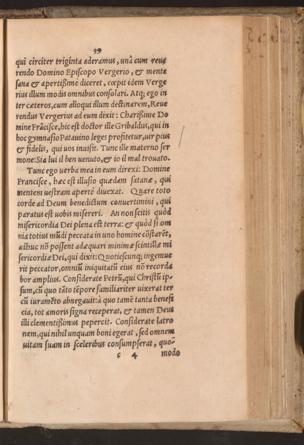 39
qui circiter triginta aderamus, unà cum reue
rendo Domino Episcopo Vergerio, & mente
sana & apertissime diceret, cœpit idem Verge
rius illum modis omnibus consolari. Atq; ego in
ter cæteros, cum alioqui illum dectinarem, Reue
rendus Vergerius ad eum dixit: Charissime Do
mine Frācisce, hic est doctor ille Gribaldus, qui in
hoc gymnasio Patauino leges profitetur, uir pius
& fidelis, qui uos inuisit. Tunc ille materno ser
mone: Sia lui il ben venuto, & io il mal trouato.
Tunc ego verba mea in eum direxi: Domine
Francisce, hæc est illusio quædam satanæ, qui
mentem uestram apertè diuexat. Quare toto
corde ad Deum benedictum conuertimini, qui
paratus est uobis misereri. An non scitis quòd
misericordia Dei plena est terra: & quòd si om
nia totius mūdi peccata in uno homine cōstarēt,
adhuc nō possent adæquari minimæ scintillæ mi
sericordiæ Dei, qui dixit: Quotiescunq; ingemue
rit peccator, omniū iniquitatū eius nō recorda
bor amplius. Considerate Petrū, qui Christū ip-
sum, cū quo tāto tēpore familiariter uixerat ter
cū iuramēto abnegauit: à quo tamē tanta benefi
cia, tot amoris signa receperat, & tamen Deus
illi clementissimus pepercit. Considerate latro
nem, qui nihil unquam boni egerat, sed omnem
uitam suam in sceleribus consumpserat, quo-
c 4 modo